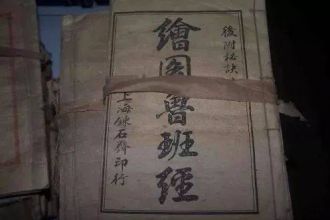 後附秘訣
繪圖魯班經
上海鍊石齋印行